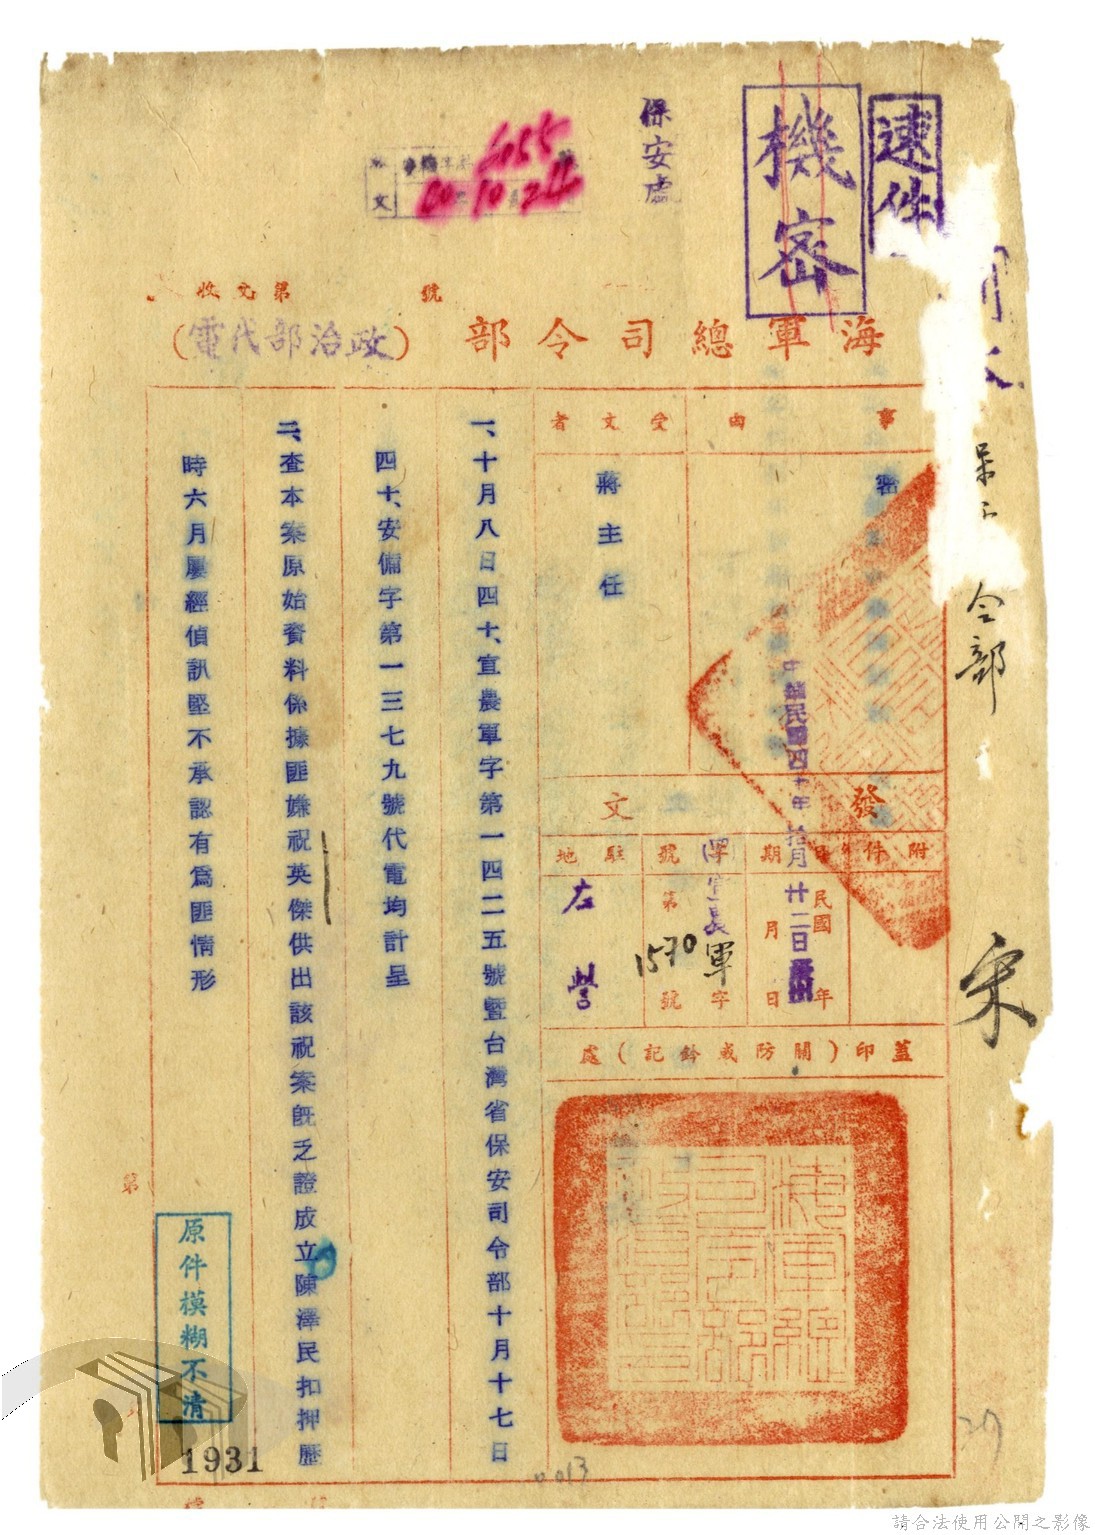 速件
機密
保安處
6055
40 10 24
收文第 號
海軍總司令部(政治部代電)
事由
密
受文者
蔣主任
發文
附件
日期
中華民國四十年拾月廿二日
民國 年 月 日
字號
軍字第1570號
駐地
左營
蓋印(關防或鈐記)處
一、十月八日四十、宣農軍字第一四二五號暨台灣省保安司令部十月十七日
四十、安傭字第一三七九號代電均計呈
二、查本案原始資料係據匪嫌祝英傑供出該祝案既乏證成立陳澤民扣押歷
時六月屢經偵訊堅不承認有為匪情形
令部
宋
第
原件模糊不清
1931
請合法使用公開之影像